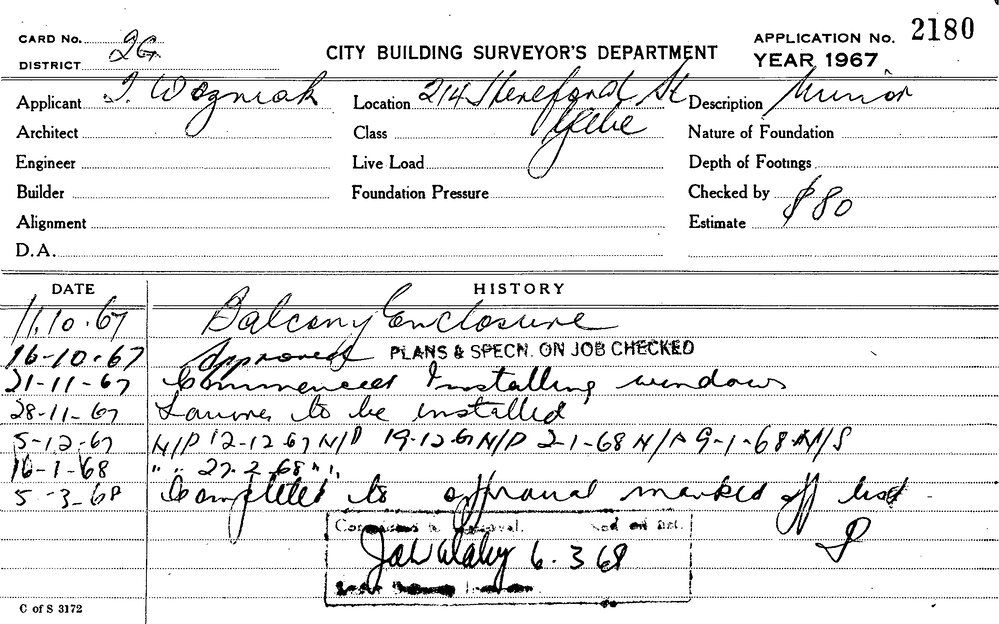 CARD No. 2G
DISTRICT
CITY BUILDING SURVEYOR'S DEPARTMENT
APPLICATION No. 2180
YEAR 1967
Applicant J. Wozniak
Location 214 Hereford St Glebe
Description Minor
Architect
Class
Nature of Foundation
Engineer
Live Load
Depth of Footings
Builder
Foundation Pressure
Checked by
Alignment
Estimate $80
D.A.
DATE HISTORY
11.10.67 Balcony Enclosure
16-10-67 Approved PLANS & SPECN. ON JOB CHECKED
21-11-67 Commenced Installing windows
28-11-67 to be installed
5-12-67 N/P 12-12-67 N/P 19-12-67 N/P 2-1-68 N/A 9-1-68 N/S
16-1-68 " " 27-2-68 " "
5-3-68 Completed to approval marked off list
6.3.68
C of S 3172